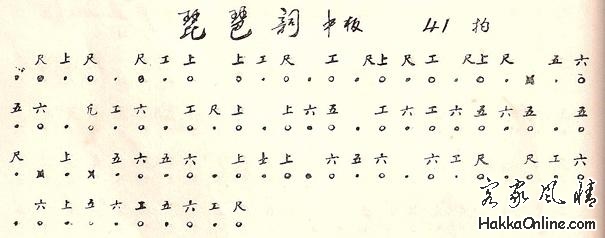 琵琶詞 中板 41拍
尺上尺 尺工上 上工尺工 尺上尺工尺上尺 五六
五六 凡工六 工尺上 上六五 工六工六五六五 五
尺 上 五六五六 上士上 六五六 六工尺 尺工六
六上五六工五六工尺
客家风情
HakkaOnline.com